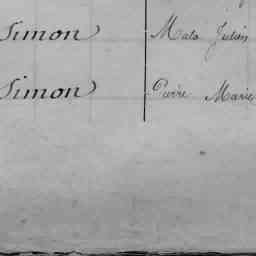 Simon Malo Julien
Simon Pierre Marie